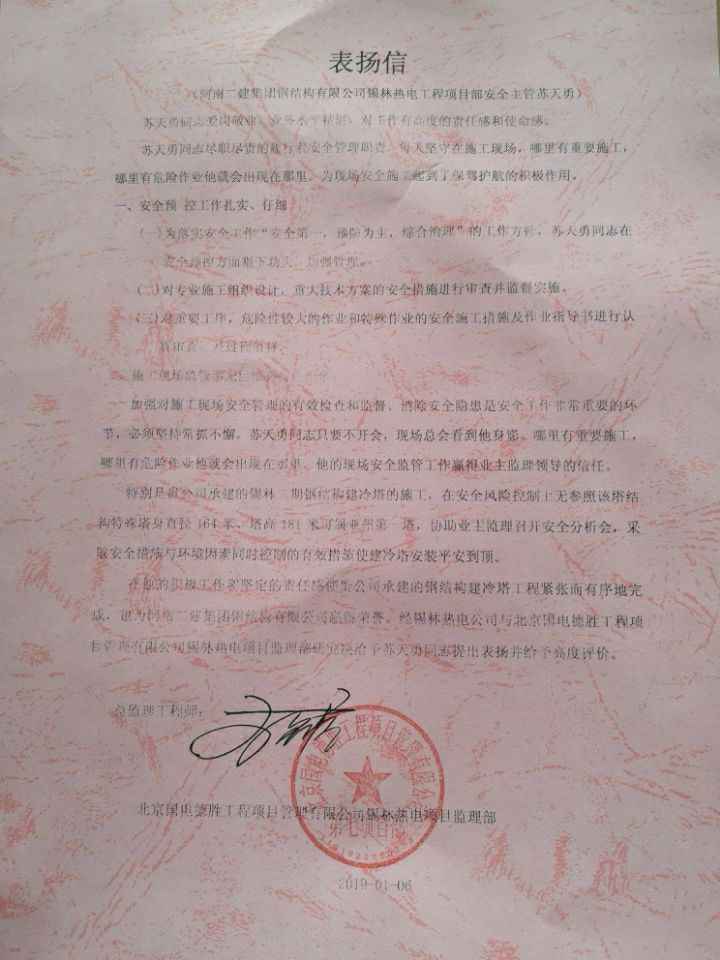 表扬信
（河南二建集团钢结构有限公司锡林热电工程项目部安全主管苏天勇）
苏天勇同志爱岗敬业、业务水平精湛，对工作有高度的责任感和使命感。
苏天勇同志尽职尽责的履行着安全管理职责，每天坚守在施工现场，哪里有重要施工，
哪里有危险作业他就会出现在那里，为现场安全施工起到了保驾护航的积极作用。
一、安全预 控工作扎实、仔细
（一）为落实安全工作“安全第一，预防为主，综合治理”的工作方针，苏天勇同志在
安全预控方面狠下功夫，加强管理。
（二）对专业施工组织设计、重大技术方案的安全措施进行审查并监督实施。
（三）对重要工序，危险性较大的作业和特殊作业的安全施工措施及作业指导书进行认
真审查
二、施工现场监管
加强对施工现场安全管理的有效检查和监督、消除安全隐患是安全工作非常重要的环
节，必须坚持常抓不懈。苏天勇同志只要不开会，现场总会看到他身影。哪里有重要施工，
哪里有危险作业他就会出现在那里。他的现场安全监管工作赢得业主监理领导的信任。
特别是贵公司承建的锡林二期钢结构建冷塔的施工，在安全风险控制上无参照该塔结
构特殊塔身直径 164 米、塔高 181 米可谓亚洲第一塔，协助业主监理召开安全分析会，采
取安全措施与环境因素同时控制的有效措施使建冷塔安装平安到顶。
在他的积极工作和坚定的责任感使贵公司承建的钢结构建冷塔工程紧张而有序地完
成，也为河南二建集团钢结构有限公司赢得荣誉。经锡林热电公司与北京国电德胜工程项
目管理有限公司锡林热电项目监理部研究决给予苏天勇同志提出表扬并给予高度评价。
总监理工程师：
北京国电德胜工程项目管理有限公司锡林热电项目监理部
第七项目部
2019-01-06